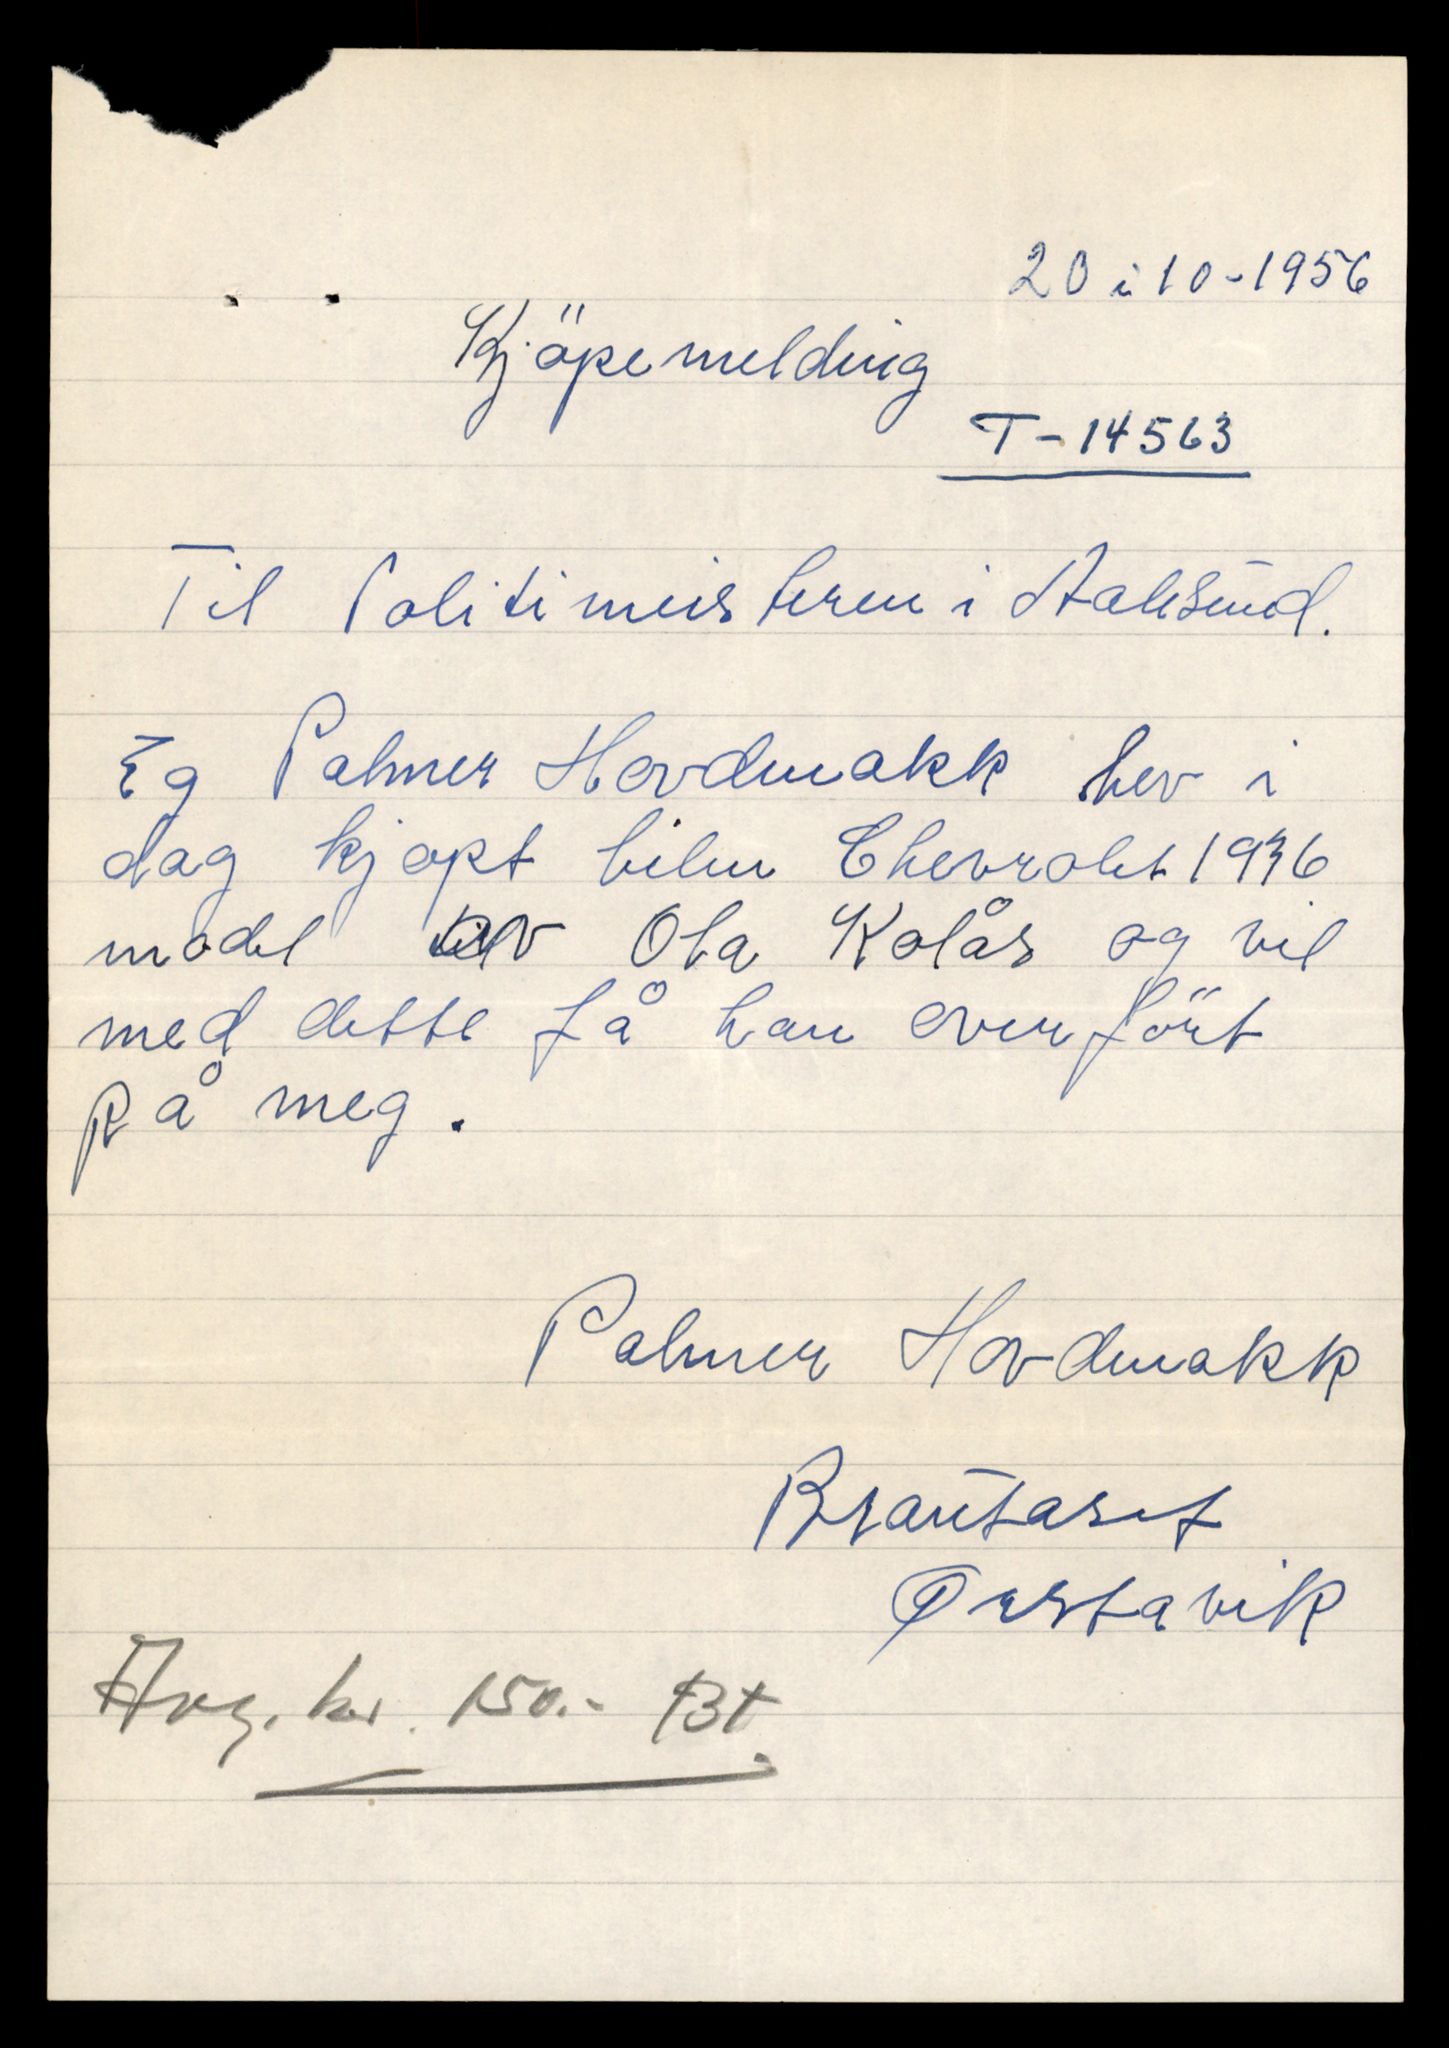 20 i 10-1956
Kjöpemelding
T-14563
Til Politimeisteren i Aalesund.
Eg Palmer Hovdmakk hev i
dag kjøpt bilen Chevrolet 1936
model av Ola Kolås og vil
med dette få han overfört
på meg.
Palmer Hovdmakk
Brautaset
Ørstavik
Avg. kr. 150.-